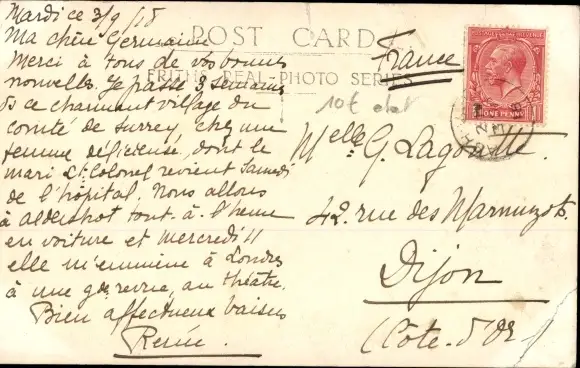 Mardi ce 3/9/18
Ma chère Germaine
Merci à tous de vos bonnes
nouvelles. Je passe 3 semaines
ds ce charmant village du
comité de Surrey, chez une
femme délicieuse, dont le
mari Lt. Colonel revient Samedi
de l'hôpital. Nous allons
à Aldershot tout à l'heure
en voiture et mercredi 11
elle m'emmène à Londres
à une gde revue, au théâtre.
Bien affectueux baisers
Renée.
POST CARD
FRITH'S REAL-PHOTO SERIES
France
10€
POSTAGE REVENUE
ONE PENNY
Melle G. Lagoutte.
42. rue des Marmuzots.
Dijon
(Côte-d'Or)